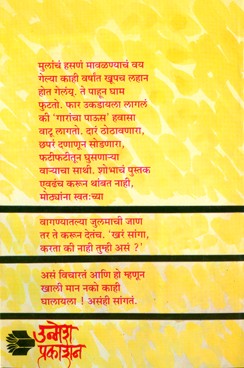 मुलांचं हसणं मावळण्याचं वय
गेल्या काही वर्षात खूपच लहान
होत गेलंय्. ते पाहून घाम
फुटतो. फार उकडायला लागलं
की 'गारांचा पाऊस' हवासा
वाटू लागतो. दारं ठोठावणारा,
छपरं दणाणून सोडणारा,
फटीफटीतून घुसणाऱ्या
वाऱ्याचा साथी. शोभाचं पुस्तक
एवढंच करून थांबत नाही,
मोठ्यांना स्वतःच्या
वागण्यातल्या जुलमाची जाण
तर ते करून देतंच. 'खरं सांगा,
करता की नाही तुम्ही असं ?'
असं विचारतं आणि हो म्हणून
खाली मान नको काही
घालायला ! असंही सांगतं.
उन्मेष
प्रकाशन